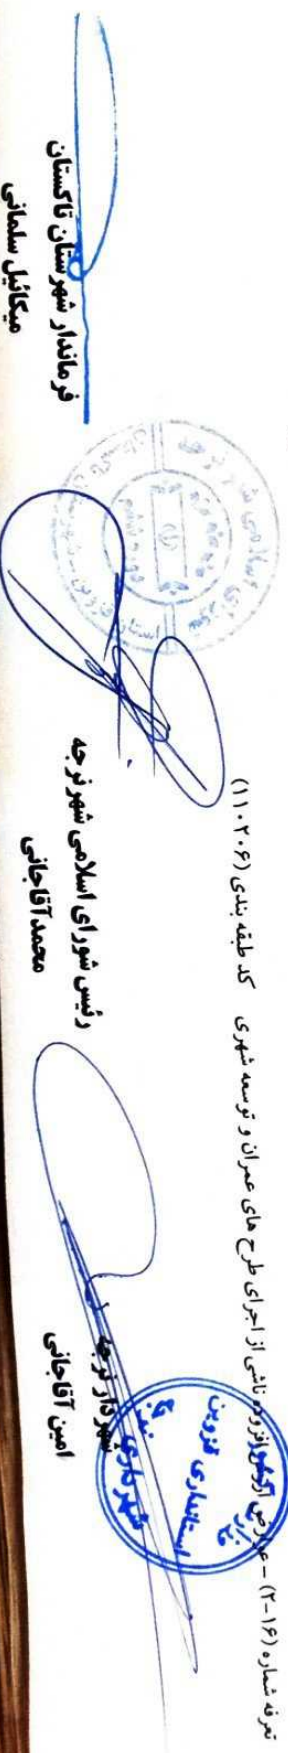 تعرفه شماره (۱۶-۲) – عوارض ارزش افزوده ناشی از اجرای طرح های عمران و توسعه شهری کد طبقه بندی (۱۱۰۲۰۶)
شهردار نرجه
امین آقاجانی
رئیس شورای اسلامی شهر نرجه
محمد آقاجانی
فرماندار شهرستان تاکستان
میکائیل سلمانی
استانداری قزوین
شهرداری